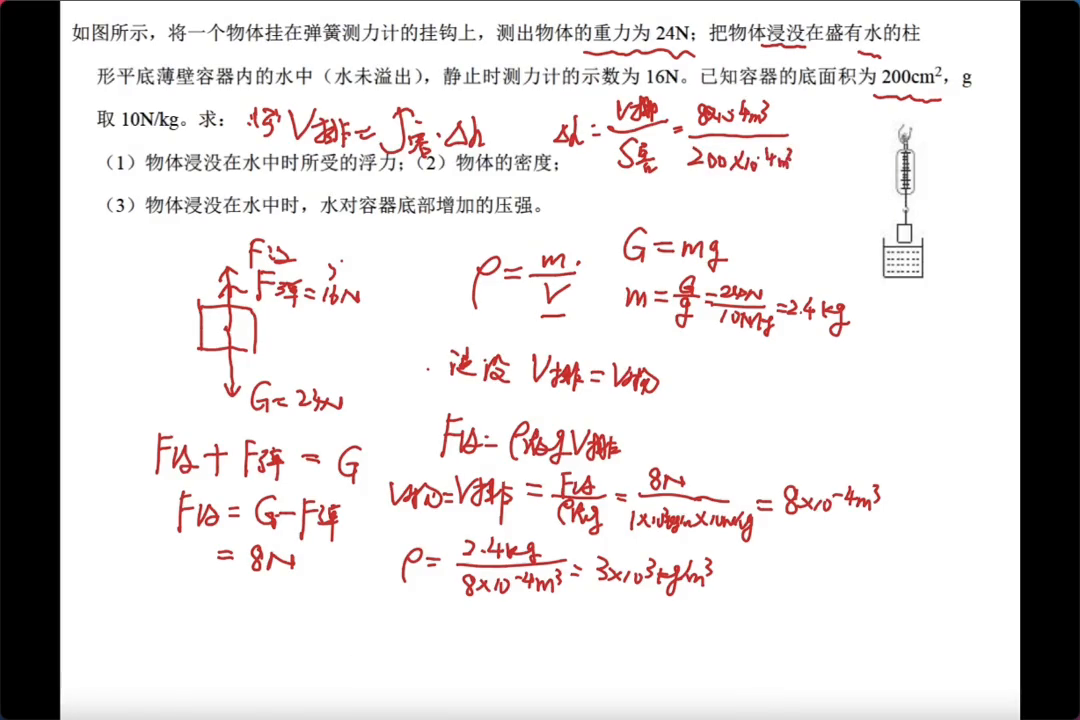 如图所示，将一个物体挂在弹簧测力计的挂钩上，测出物体的重力为 24N；把物体浸没在盛有水的柱
形平底薄壁容器内的水中（水未溢出），静止时测力计的示数为 16N。已知容器的底面积为 200cm²，g
取 10N/kg。求：
V排=S容·Δh
Δh=V排/S容=8×10⁻⁴m³/200×10⁻⁴m²
（1）物体浸没在水中时所受的浮力；（2）物体的密度；
（3）物体浸没在水中时，水对容器底部增加的压强。
F浮
F弹=16N
G=24N
ρ=m/V
G=mg
m=G/g=24N/10N/kg=2.4kg
浸没 V排=V物
F浮+F弹=G
F浮=G-F弹
=8N
F浮=ρ液gV排
V物=V排=F浮/ρ液g=8N/1×10³kg/m³×10N/kg=8×10⁻⁴m³
ρ=2.4kg/8×10⁻⁴m³=3×10³kg/m³